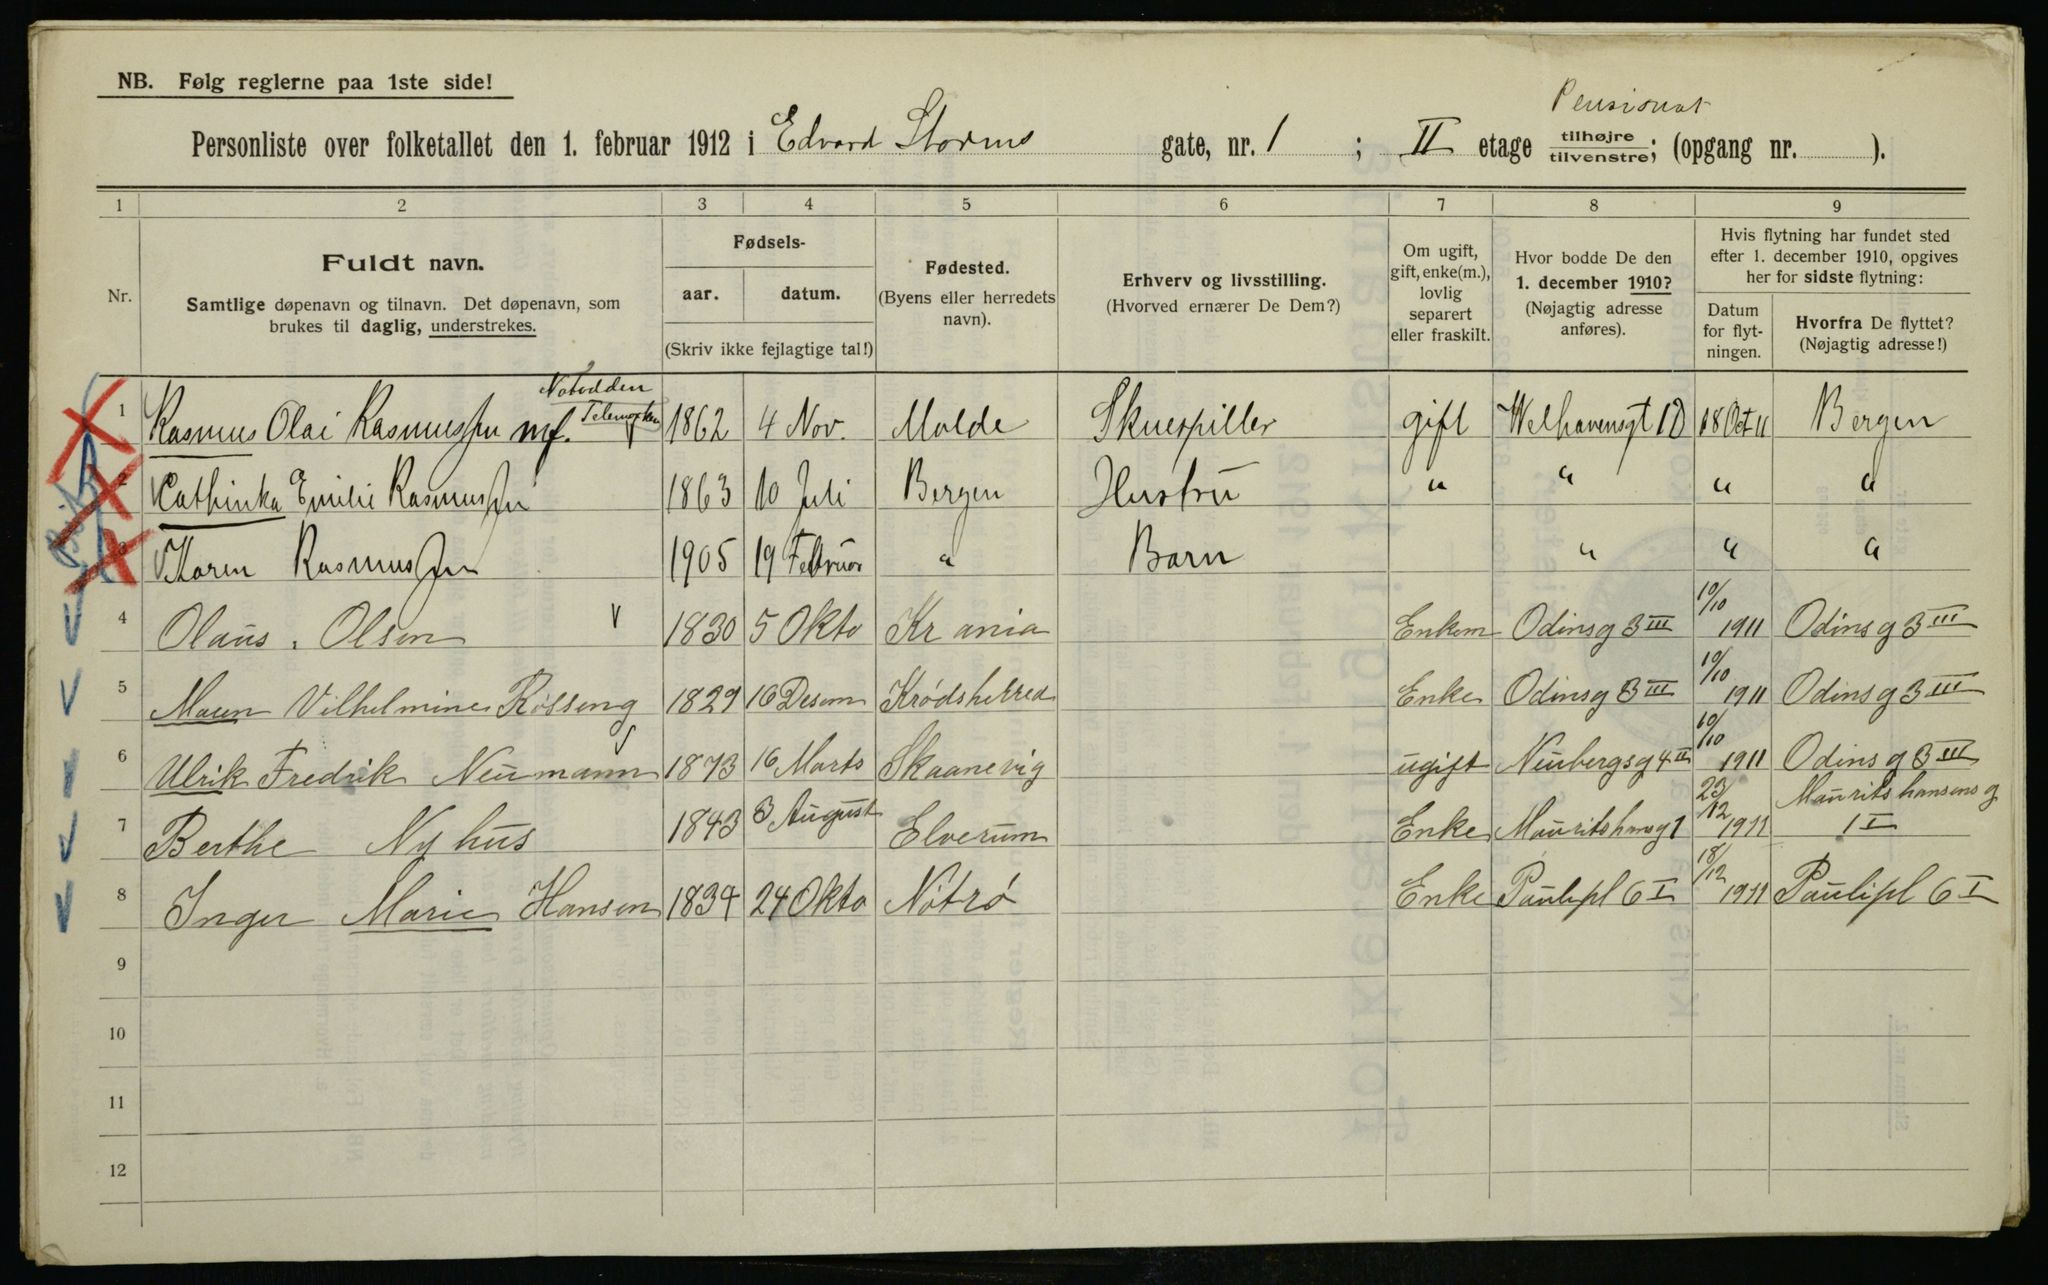 NB. Følg reglerne paa 1ste side!
Pensionat
Personliste over folketallet den 1. februar 1912 i Edvard Storms gate, nr. 1 ; II etage tilhøjre/tilvenstre; (opgang nr. ).
1 2 3 4 5 6 7 8 9
Nr.
Fuldt navn.
Samtlige døpenavn og tilnavn. Det døpenavn, som
brukes til daglig, understrekes.
Fødsels-
aar. datum.
(Skriv ikke fejlagtige tal!)
Fødested.
(Byens eller herredets
navn).
Erhverv og livsstilling.
(Hvorved ernærer De Dem?)
Om ugift,
gift, enke(m.),
lovlig
separert
eller fraskilt.
Hvor bodde De den
1. december 1910?
(Nøjagtig adresse
anføres).
Hvis flytning har fundet sted
efter 1. december 1910, opgives
her for sidste flytning:
Datum
for flyt-
ningen.
Hvorfra De flyttet?
(Nøjagtig adresse!)
Notodden
Telemarken
1 Rasmus Olai Rasmussen mf. 1862 4 Nov. Molde Skuespiller gift Welhavensgt 10 18 Oct 11 Bergen
2 Cathinka Emilie Rasmussen 1863 10 Juli Bergen Hustru " " " "
3 Karen Rasmussen 1905 19 Februar " Barn " " "
4 Olaus Olsen 1830 5 Okto Kr ania Enkem Odinsg 3 III 10/10 1911 Odinsg 3 III
5 Maren Vilhelmine Røsseng 1829 16 Desem Krødsherred Enke Odinsg 3 III 10/10 1911 Odinsg 3 III
6 Ulrik Fredrik Neumann 1873 16 Marts Skaanevig ugift Neubergsg 4 II 10/10 1911 Odinsg 3 III
7 Berthe Nyhus 1843 3 August Elverum Enke Mauritshansg 1 23/12 1911 Maurits hansens g
1 I
8 Inger Marie Hansen 1834 24 Okto Nøtrø Enke Paulipl 6 I 18/12 1911 Paulipl 6 I
9
10
11
12